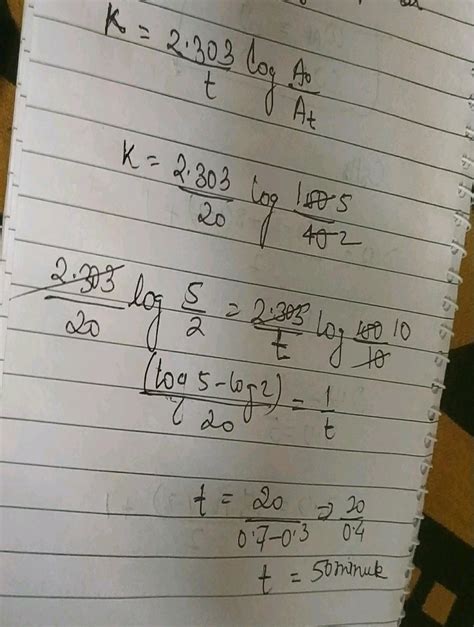 K = 2.303/t log A₀/Aₜ
K = 2.303/20 log 100 5/40 2
2.303/20 log 5/2 = 2.303/t log 100 10/10
(log 5 - log 2)/20 = 1/t
t = 20/0.7-0.3 ⇒ 20/0.4
t = 50 minute